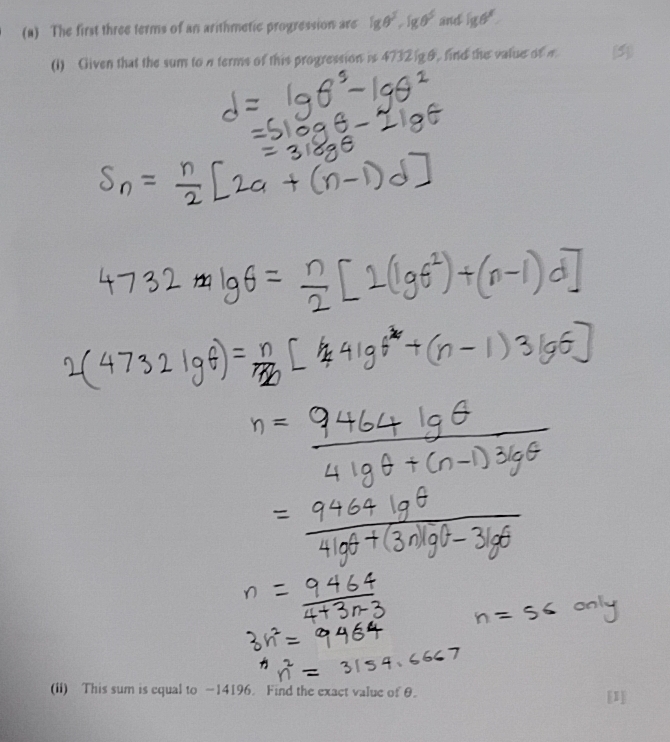 (a) The first three terms of an arithmetic progression are lgθ², lgθ⁵ and lgθ⁸.
(i) Given that the sum to n terms of this progression is 4732 lgθ, find the value of n. [5]
d = lgθ⁵ - lgθ²
= 5logθ - 2lgθ
= 3lgθ
Sn = n/2 [2a + (n-1)d]
4732 lgθ = n/2 [2(lgθ²) + (n-1)d]
2(4732 lgθ) = n [4lgθ + (n-1)3lgθ]
n = 9464 lgθ / 4lgθ + (n-1)3lgθ
= 9464 lgθ / 4lgθ + (3n)lgθ - 3lgθ
n = 9464 / 4+3n-3
3n² = 9464
n = 56 only
n² = 3154.6667
(ii) This sum is equal to −14196. Find the exact value of θ. [1]